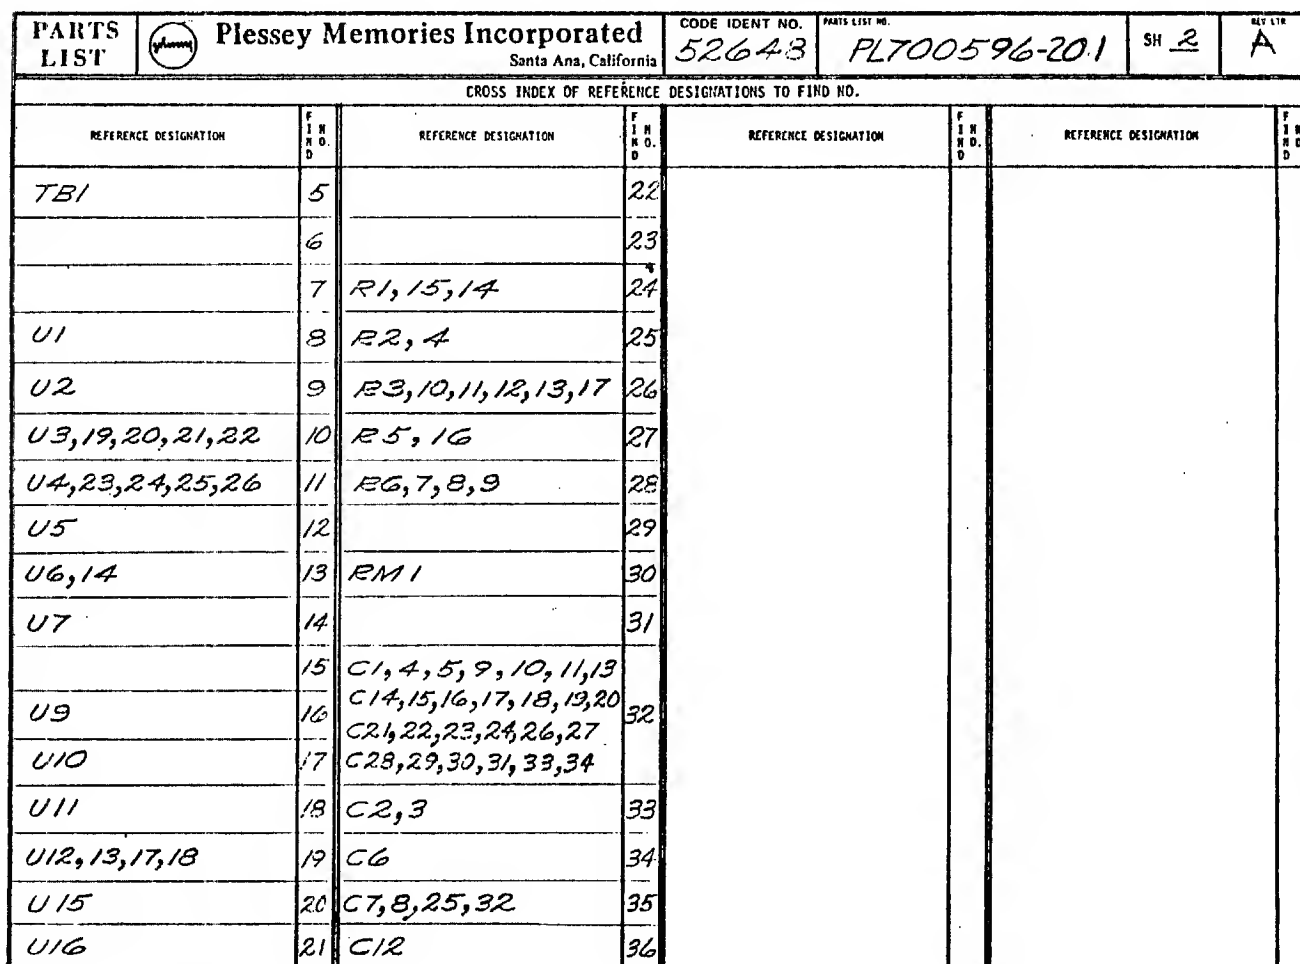 PARTS LIST
plessey
Plessey Memories Incorporated
Santa Ana, California
CODE IDENT NO.
52648
PARTS LIST NO.
PL700596-201
SH 2
REV LTR
A
CROSS INDEX OF REFERENCE DESIGNATIONS TO FIND NO.
REFERENCE DESIGNATION FIND NO. REFERENCE DESIGNATION FIND NO. REFERENCE DESIGNATION FIND NO. REFERENCE DESIGNATION FIND NO
TB1 5 22
6 23
7 R1,15,14 24
U1 8 R2,4 25
U2 9 R3,10,11,12,13,17 26
U3,19,20,21,22 10 R5,16 27
U4,23,24,25,26 11 R6,7,8,9 28
U5 12 29
U6,14 13 RM1 30
U7 14 31
15 C1,4,5,9,10,11,13
U9 16 C14,15,16,17,18,19,20 32
C21,22,23,24,26,27
U10 17 C28,29,30,31,33,34
U11 18 C2,3 33
U12,13,17,18 19 C6 34
U15 20 C7,8,25,32 35
U16 21 C12 36